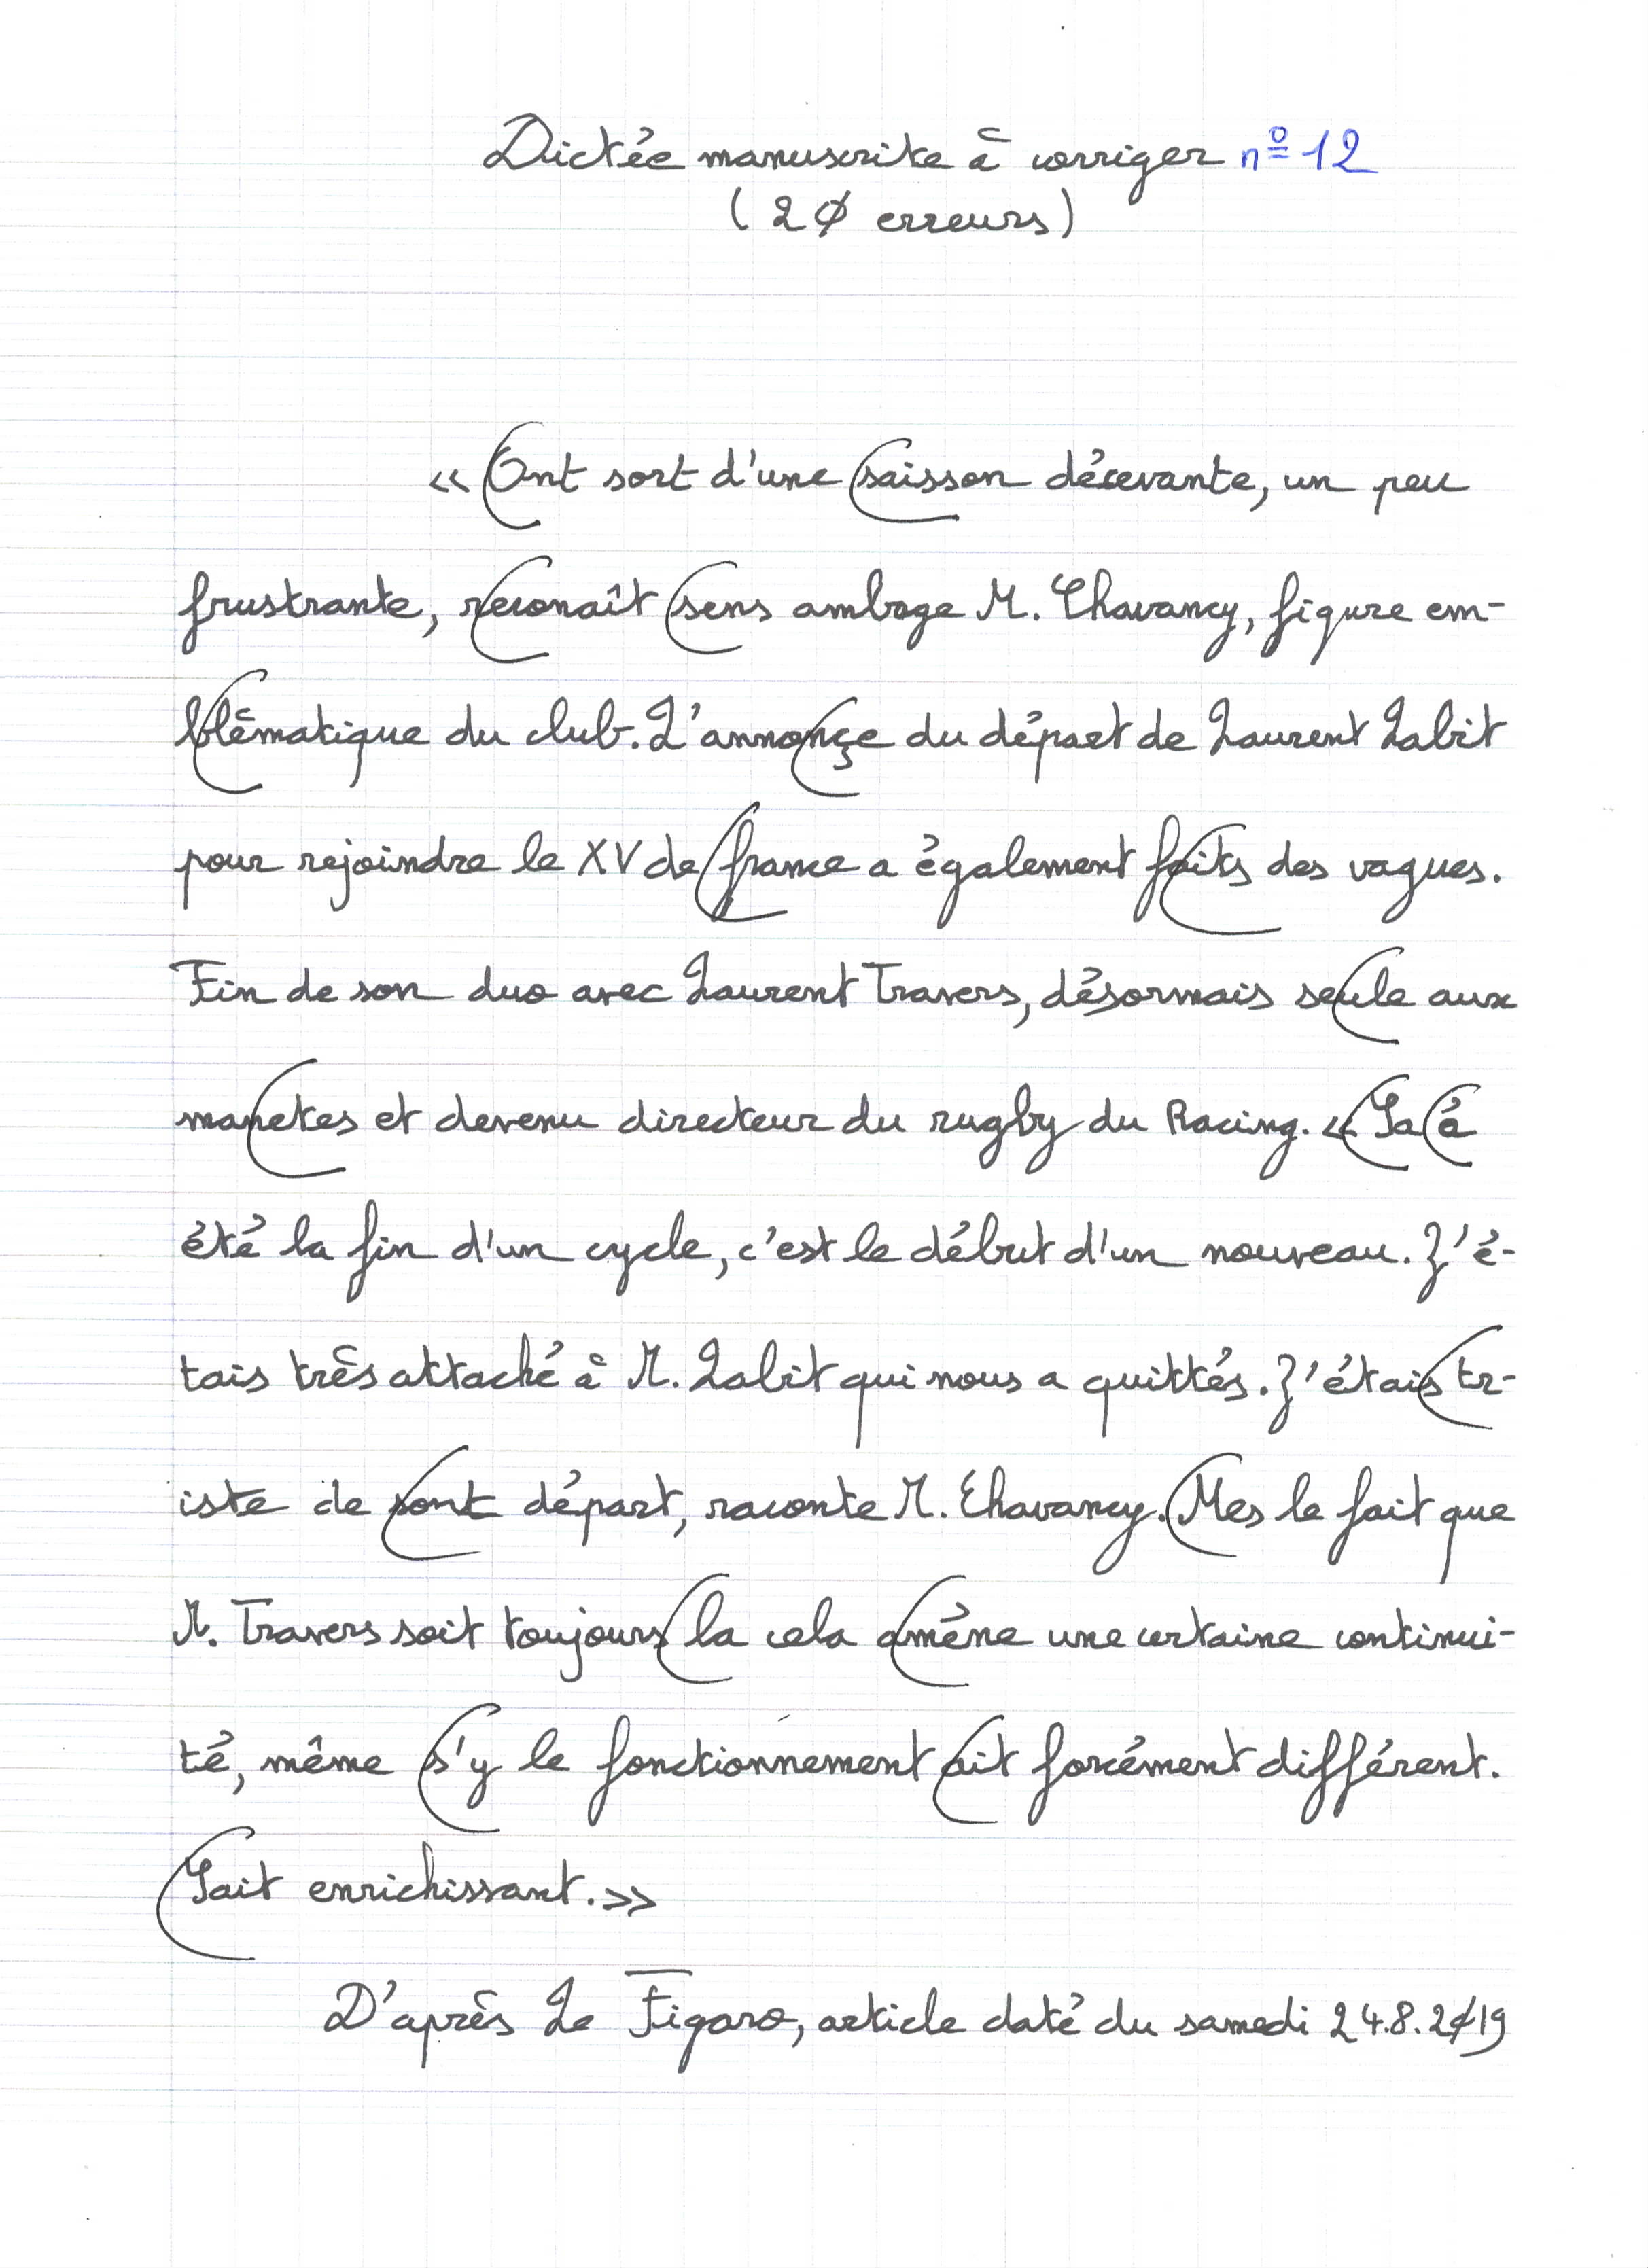 Dictée manuscrite à corriger nº 12
(20 erreurs)
« Ont sort d'une saisson décevante, un peu
frustrante, reconaît sens ambage M. Chavancy, figure em-
blèmatique du club. L'annonçe du départ de Laurent Labit
pour rejoindre le XV de france a également faits des vagues.
Fin de son duo avec Laurent Travers, désormais seule aux
manetes et devenu directeur du rugby du Racing. « Sa á
été la fin d'un cycle, c'est le début d'un nouveau. J'é-
tais très attaché à M. Labit qui nous a quittés. J'étais tr-
iste de sont départ, raconte M. Chavancy. Mes le fait que
M. Travers soit toujours la cela améne une certaine continui-
té, même s'y le fonctionnement ait forcément différent.
Sait enrichissant. »
D'après Le Figaro, article daté du samedi 24.8.2019